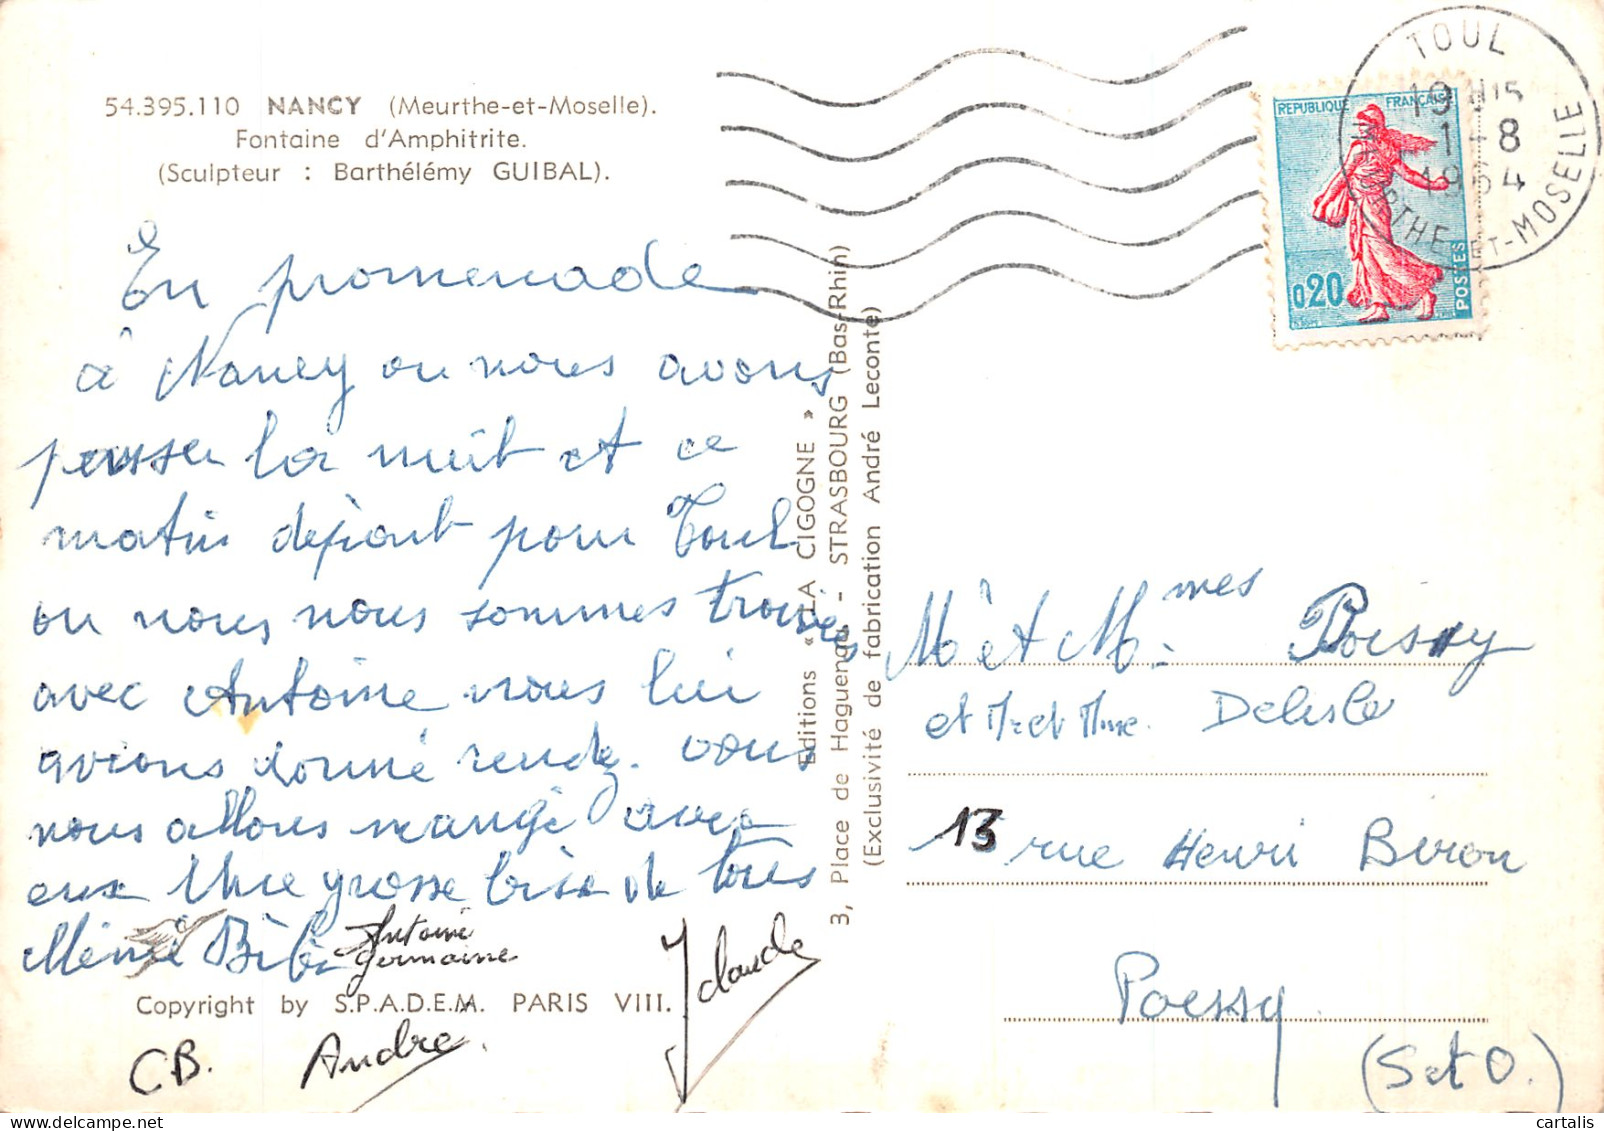 54.395.110 NANCY (Meurthe-et-Moselle).
Fontaine d'Amphitrite.
(Sculpteur : Barthélémy GUIBAL).
En promenade
à Nancy ou nous avons
passer la nuit et ce
matin départ pour Toul
ou nous nous sommes trouvés
avec Antoine nous lui
avions donné rendez. vous
nous allons mangé avec
eux Une grosse bise de tous
Mémé Bébé
Antoine
Germaine
Jclaude
Copyright by S.P.A.D.E.M. PARIS VIII.
CB. André.
Editions « LA CIGOGNE »
3, Place de Haguenau - STRASBOURG (Bas-Rhin)
(Exclusivité de fabrication André Leconte)
TOUL
19H15
1-8
1964
MEURTHE-ET-MOSELLE
REPUBLIQUE FRANÇAISE
0,20
POSTES
Mr et M.mes Poissy
et Mr et Mme. Delisle
13 rue Henri Biron
Poissy
(S et O.)
cartalis